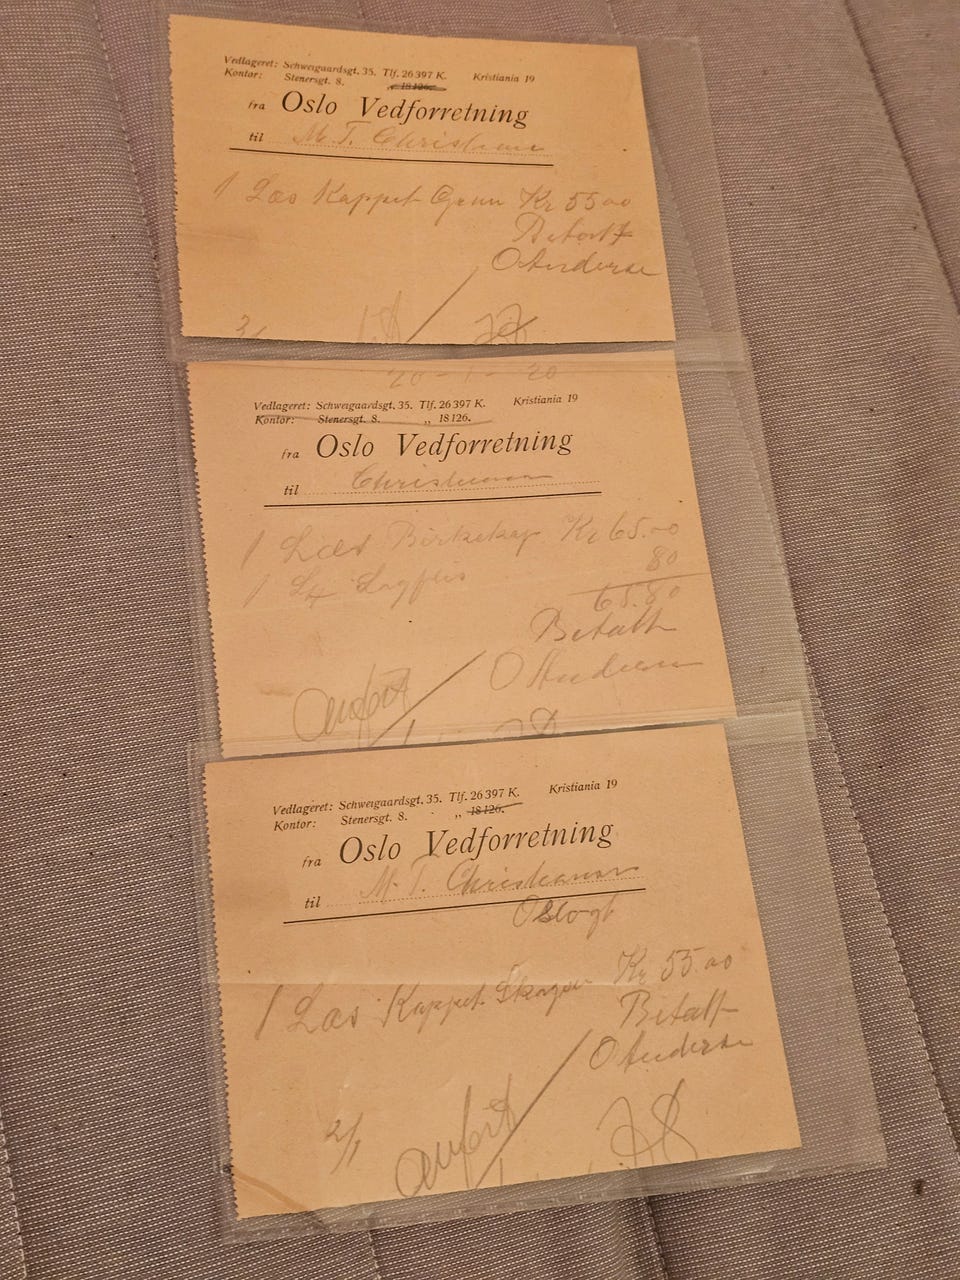 Vedlageret: Schweigaardsgt. 35. Tlf. 26397 K. Kristiania 19
Kontor: Stenersgt. 8. „ 18126.
fra Oslo Vedforretning
til M. T. Christiansen
1 Læs Kappet Gran Kr 55 00
Betalt
O Andersen
20 - 1 - 20
Vedlageret: Schweigaardsgt. 35. Tlf. 26397 K. Kristiania 19
Kontor: Stenersgt. 8. „ 18126.
fra Oslo Vedforretning
til Christiansen
1 Læs Birkekap Kr 65.00
1 80
65.80
Betalt
O Andersen
Anført
Vedlageret: Schweigaardsgt. 35. Tlf. 26397 K. Kristiania 19
Kontor: Stenersgt. 8. „ 18126.
fra Oslo Vedforretning
til M. T. Christiansen
Oslogt
1 Læs Kappet Kr 55.00
Betalt
O Andersen
2/1 Anført